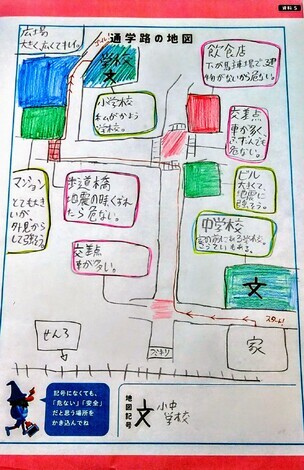 資料5
通学路の地図
広場
大きく広くてきれい。
学校
文
ゴール
飲食店
下が馬車場で、建
物がないから危ない。
小学校
私がかよう
学校。
交差点
車が多く、
危ない。
マンション
とても大き
いが、
外見から
して弱そう。
歩道橋
地震の時くずれ
たら危ない。
ビル
大きくて、
地震に
強そう。
中学校
交差点
車が多い。
文
スタート!
家
せんろ
フミキリ
記号になくても、
「危ない」「安全」
だと思う場所を
かき込んでね
地図記号
文
小中
学校